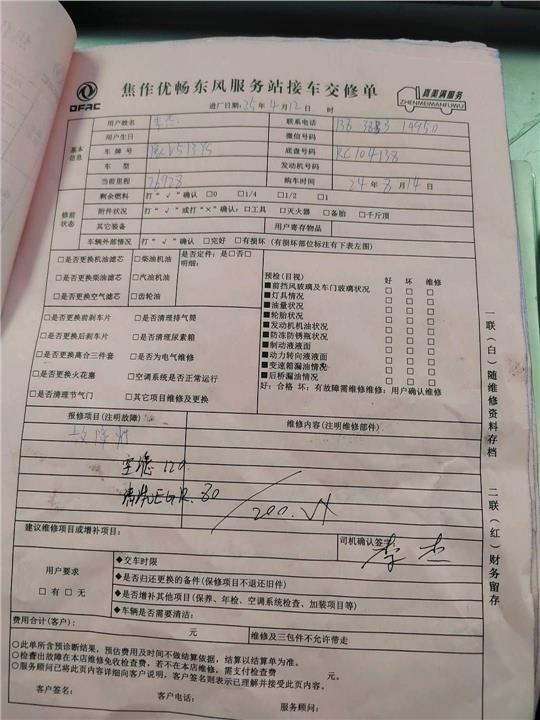 DFAC
焦作优畅东风服务站接车交修单
真美满服务
ZHENMEIMANFUWU
进厂日期：25年4月12日 时
基本信息
用户姓名 李杰 联系电话
用户生日 微信号码
车牌号 底盘号码 RC104138
车型 发动机号码
当前里程 26928 购车时间 24年8月14日
修前状态
剩余燃料 打“√”确认 □0 □1/4 □1/2 □1
附件状况 打“√”或打“×”确认：□工具 □灭火器 □备胎 □千斤顶
其它装备 用户寄存物品
车辆外部情况 打“√”确认 □完好 □有损坏（有损部位标注有下表左图）
□是否更换机油滤芯 □柴油机油 是否定件：是□否□
明细：
□是否更换柴油滤芯 □汽油机油
□是否更换空气滤芯 □齿轮油
□是否更换前刹车片 □是否清理排气筒
□是否更换后刹车片 □是否清理尿素箱
□是否更换离合三件套 □是否为电气维修
□是否更换火花塞 □空调系统是否正常运行
□是否清理节气门 □其它项目维修及更换
预检（目视） 好 坏 维修
■前挡风玻璃及车门玻璃状况 □ □ □
■灯具情况 □ □ □
■油量状况 □ □ □
■轮胎状况 □ □ □
■发动机机油状况 □ □ □
■防冻防锈瓶状况 □ □ □
■制动液液面 □ □ □
■动力转向液液面 □ □ □
■变速箱漏油情况 □ □ □
■后桥漏油情况 □ □ □
好：合格 坏：有故障需维修维修：用户确认维修
报修项目（注明故障） 维修内容（注明维修部件）
故障灯
空滤 120
清洗EGR.80
200.
建议维修项目或增补项目：
司机确认签字：
李杰
用户要求
□有 □无
◆交车时限
◆是否归还更换的备件（保修项目不退还旧件）
◆是否增补其他项目（保养、年检、空调系统检查、加装项目等）
◆车辆是否需要清洁：
费用合计（客户）：
元 维修及三包件不允许带走
○此单所含预诊断结果，预估费用及时间不做结算依据，结算以结算单为准。
○检查出故障在本店维修免收检查费，若不在本店维修，需支付检查费 元。
○服务顾问已将此页内容详细向客户说明，客户签名则表示已理解并接受此页内容。
客户签名： 客户电话： 服务顾问：
一联（白）随维修资料存档
二联（红）财务留存